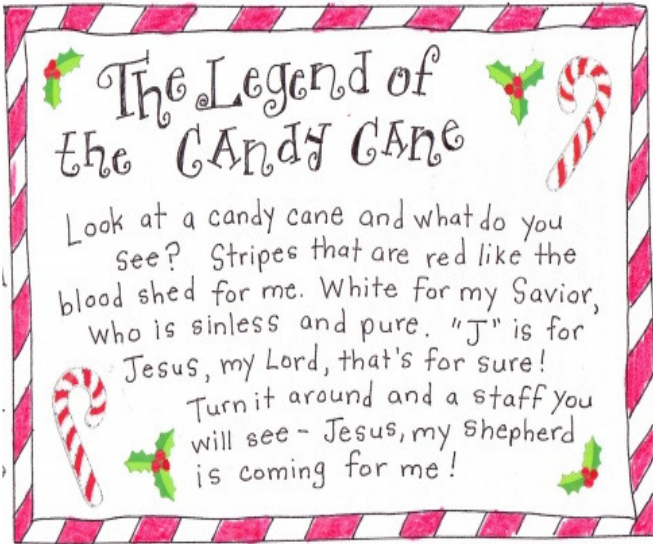 The Legend of
the CANdY CANe
Look at a candy cane and what do you
see? Stripes that are red like the
blood shed for me. White for my Savior,
who is sinless and pure. "J" is for
Jesus, my Lord, that's for sure!
Turn it around and a staff you
will see - Jesus, my Shepherd
is coming for me!